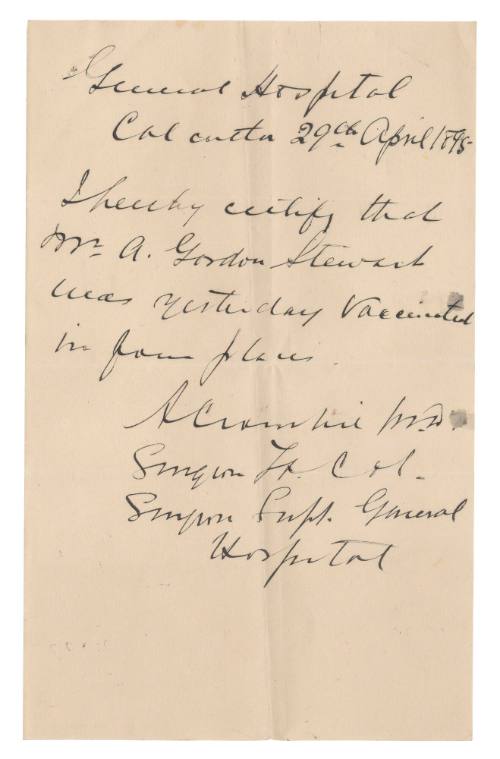 General Hospital
Calcutta 29th April 1895
I hereby certify that
Mr. A. Gordon Stewart
was yesterday Vaccinated
in four places.
A Crombie M.D.
Surgeon Lt. Col.
Surgeon Supt. General
Hospital